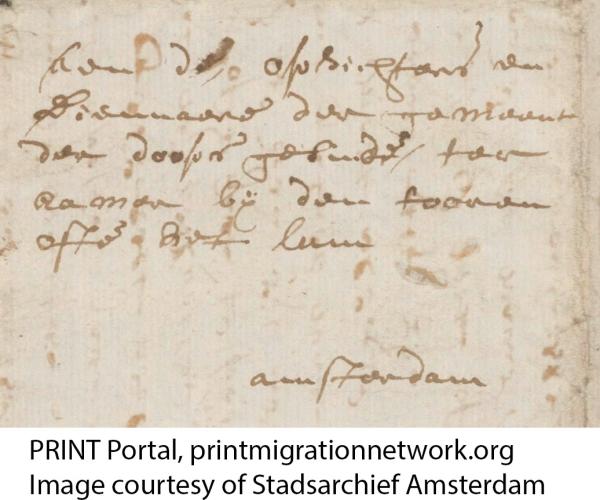 Aen d' opsichters en
Dienaers der gemeent
der doops gesinde / ter
kamer by den tooren
ofte het lam
amsterdam
PRINT Portal, printmigrationnetwork.org
Image courtesy of Stadsarchief Amsterdam